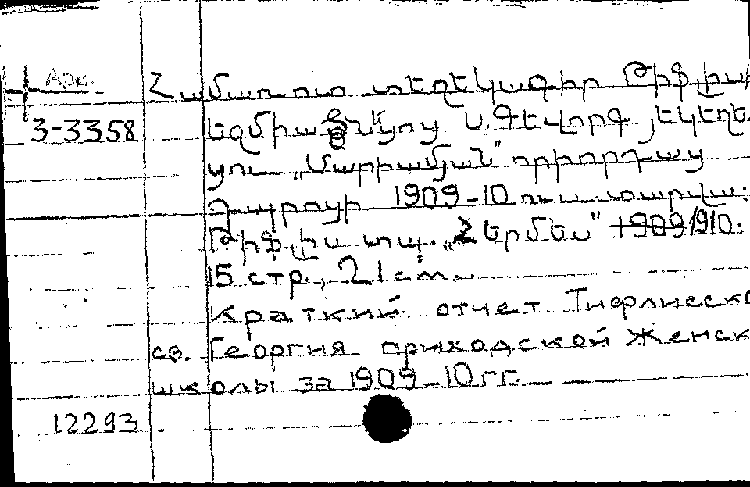 Арм. Համառոտ տեղեկագիր Թիֆլիսի
3-3358 եզմիածնկոյ Ս. Գեվորգ եկեղե
յու „Մարիամյան" օրիորդաց
դպրոցի 1909-10 ուս. տարվա:
Թիֆլիս տպ. „Հերմես" 1909 1910.
15 стр., 21 cm.
Краткий отчет Тифлисско
св. Георгия приходской женск
школы за 1909-10 гг.
12293